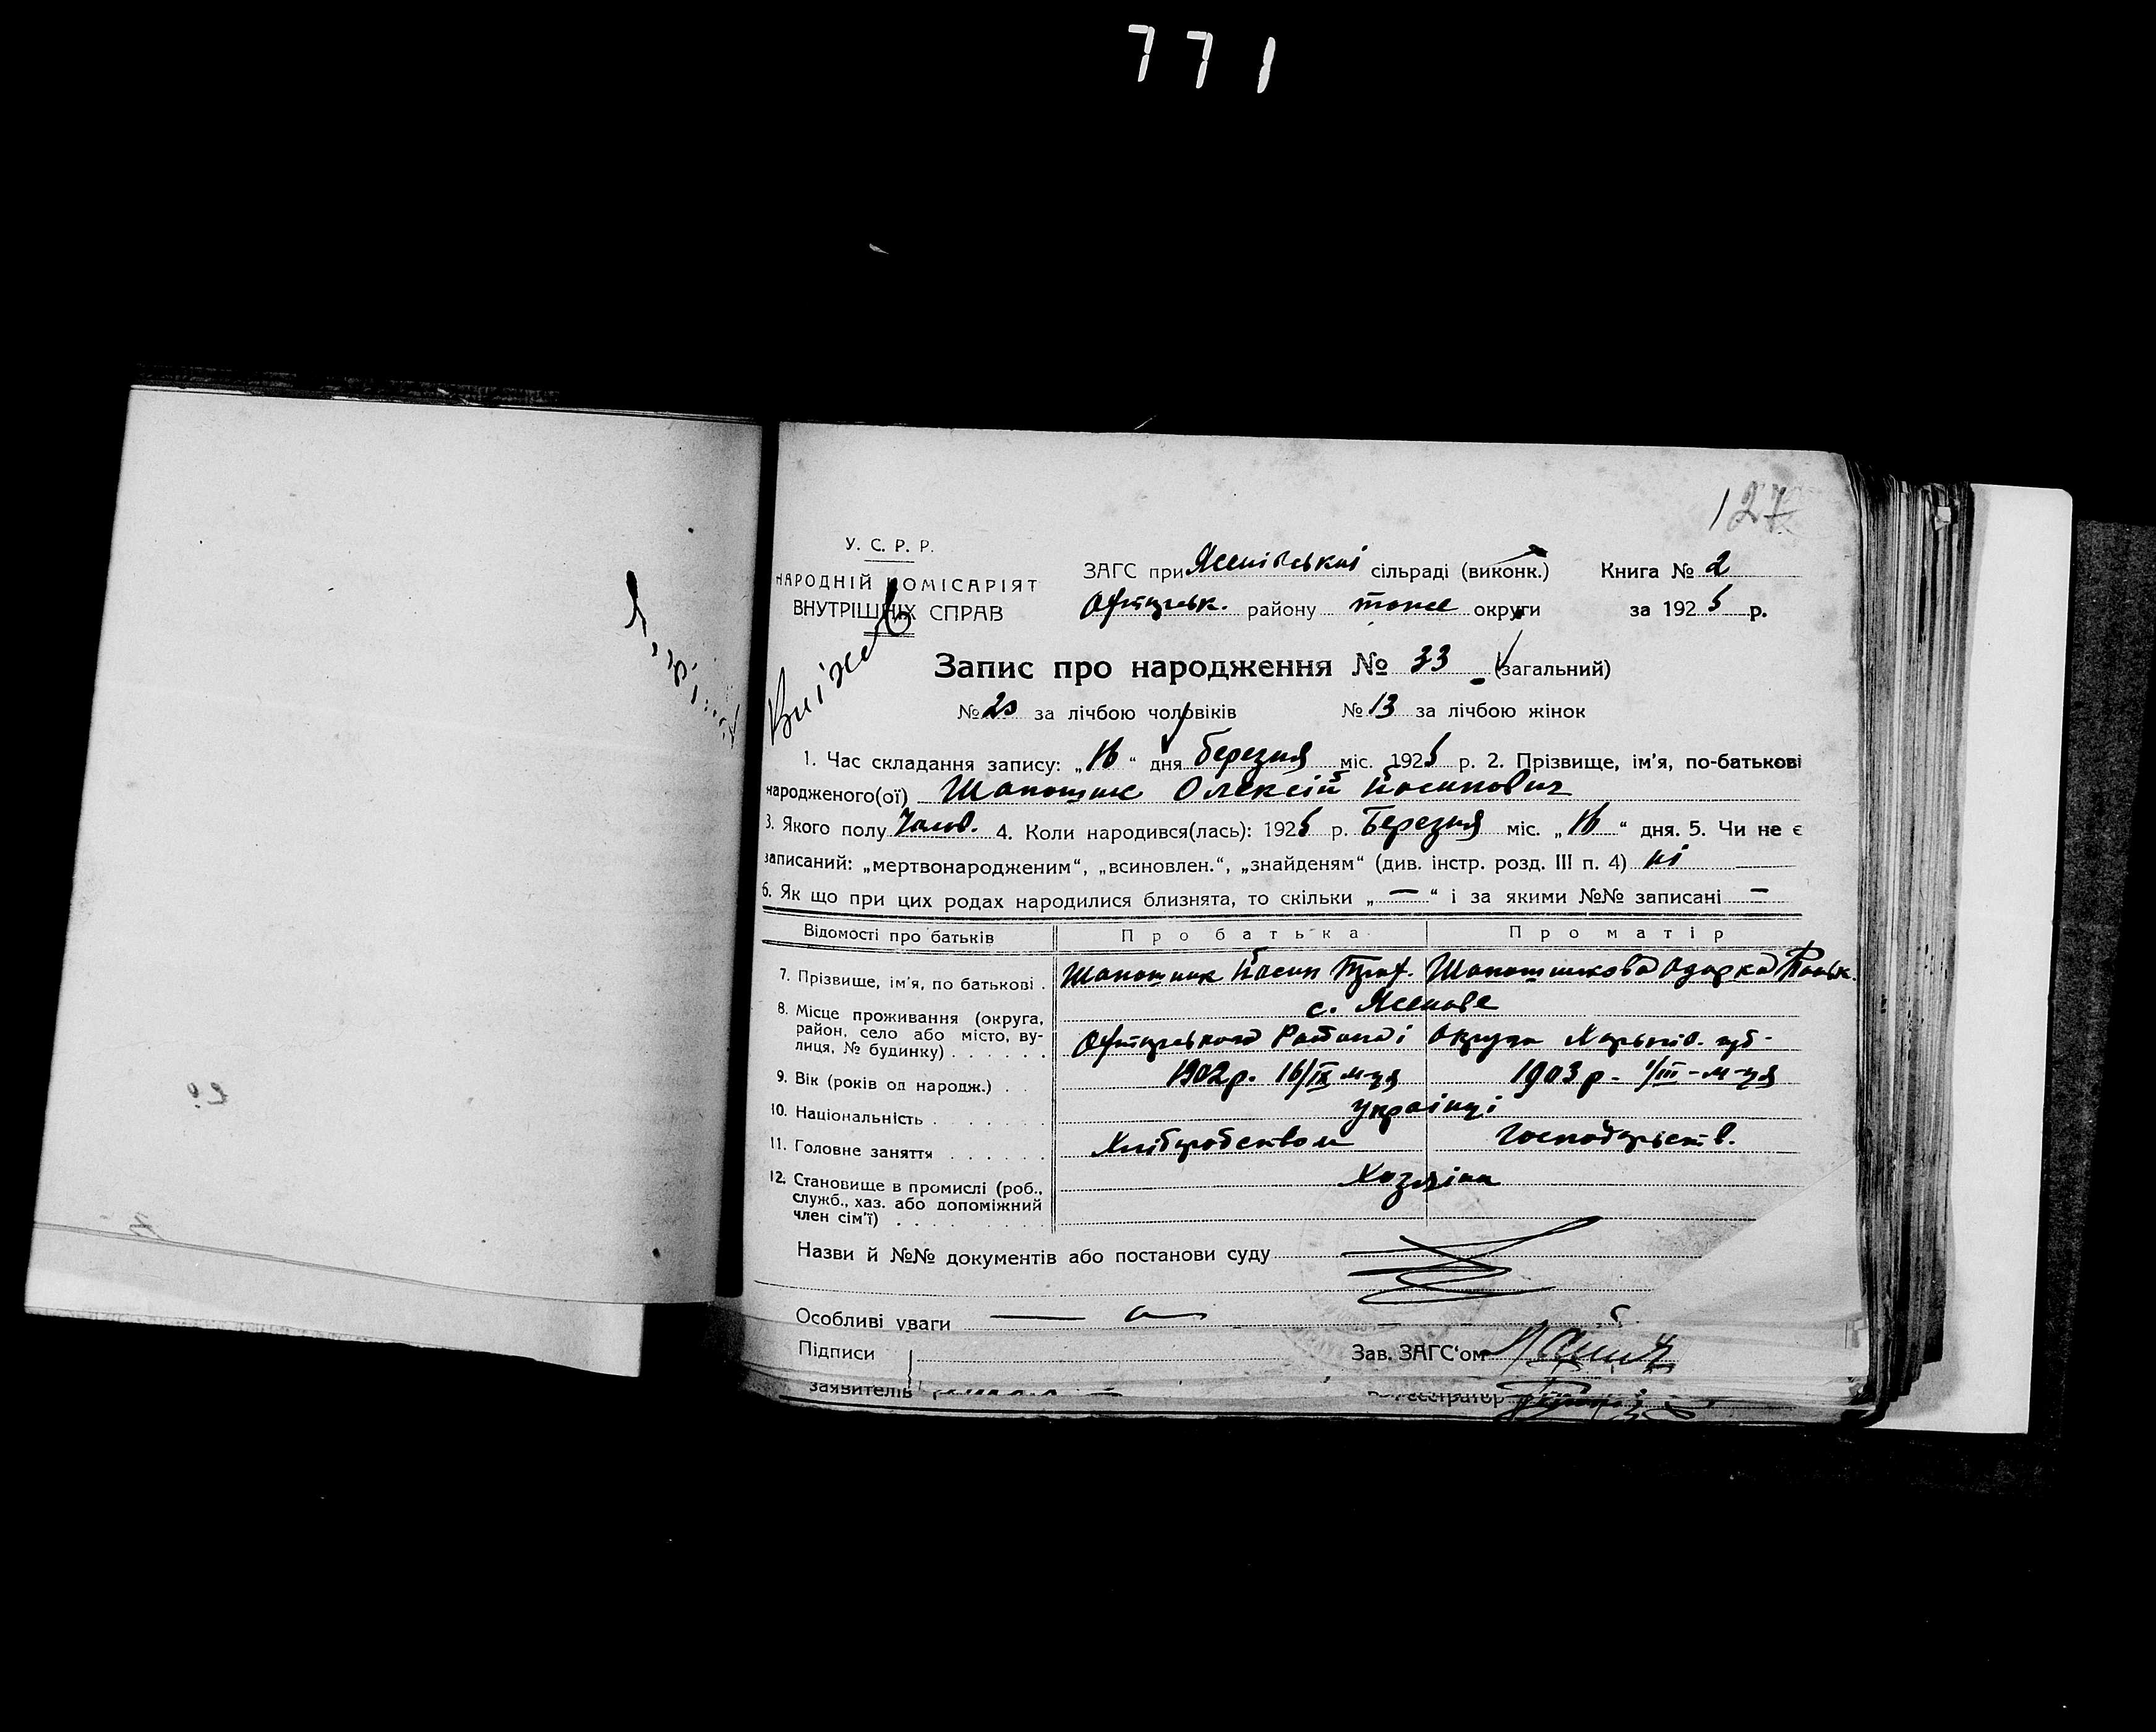 771
127
У. С. Р. Р.
НАРОДНІЙ КОМІСАРІЯТ
ВНУТРІШНІХ СПРАВ
ЗАГС при Ясенівській сільраді (виконк.) Книга № 2
району тоже округи за 1925 р.
Запис про народження № 33 (загальний)
№ 20 за лічбою чоловіків № 13 за лічбою жінок
1. Час складання запису: „16“ дня березня міс. 1925 р. 2. Прізвище, ім'я, по-батькові
народженого(ої) Шапошник Олексій Йосипович
3. Якого полу Чолов. 4. Коли народився(лась): 1925 р. Березня міс. „16“ дня. 5. Чи не є
записаний: „мертвонародженим“, „всиновлен.“, „знайденям“ (див. інстр. розд. III п. 4) ні
6. Як що при цих родах народилися близнята, то скільки „—“ і за якими №№ записані —
Відомості про батьків Про батька Про матір
7. Прізвище, ім'я, по батькові . Шапошник Йосип Шапошникова Одарка
8. Місце проживання (округа, район, село або місто, вулиця, № будинку) . . . . . .
с. Ясенове
Района і Округи Харьків. губ.
9. Вік (років од народж.) . . 1902 р. 16/IX м-ця 1903 р. 1/III-м-ця
10. Національність . . . . . . українці
11. Головне заняття . . . . . . Хліборобством Господарств.
12. Становище в промислі (роб., служб., хаз. або допоміжний член сім'ї) . . . . . . Хозяіни
Назви й №№ документів або постанови суду
Особливі уваги —
Підписи
заявителів
Зав. ЗАГС'ом
Реєстратор